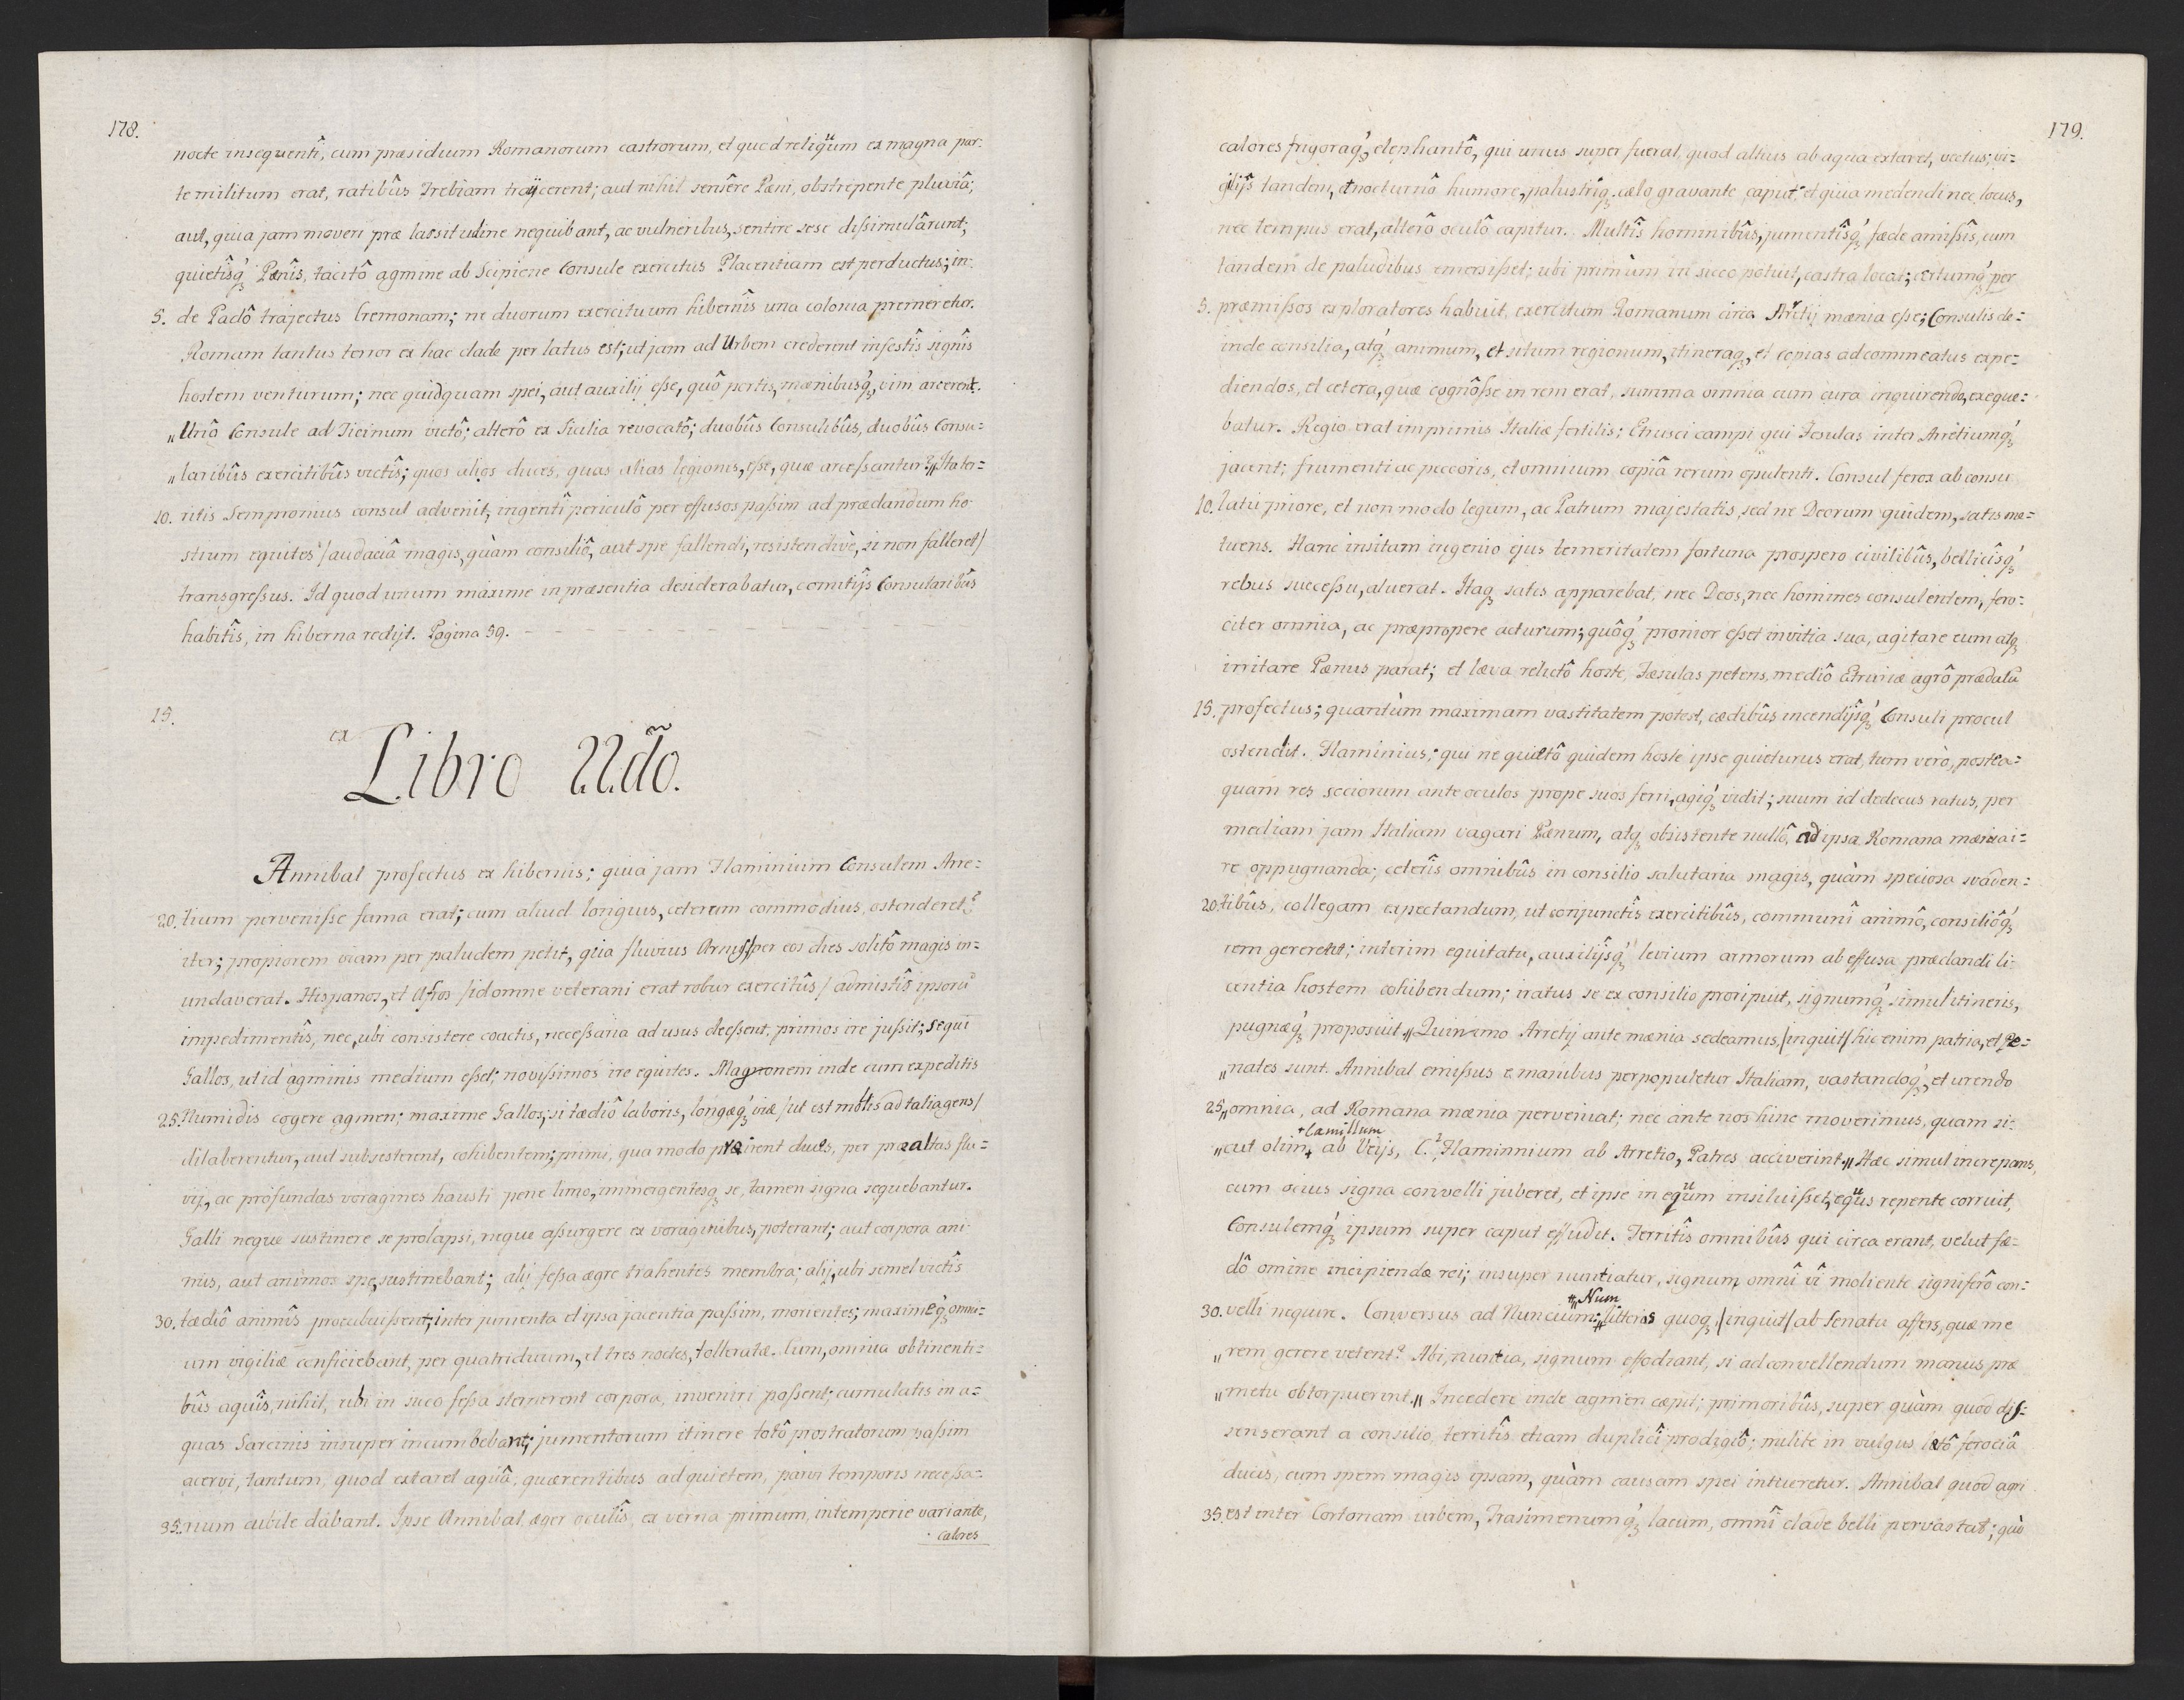 178.
nocte insequenti, cum præsidium Romanorum castrorum, et quod reliquum ex magna par-
te militum erat, ratibûs Trebiam trajicerent; aut nihil sensêre Pœni, obstrepente pluviâ;
aut, quia jam moveri præ lassitudine nequibant, ac vulneribus, sentire sese dissimulârunt;
quietîsq́ꝫ Pœnîs, tacitô agmine ab Scipione Consule exercitus Placentiam est perductus; in-
5. de Padô trajectus Cremonam; ne duorum exercituum hibernîs una colonia premeretur.
Romam tantus terror ex hac clade perlatus est; ut jam ad Urbem crederent infestîs signîs
hostem venturum; nec quidquam spei, aut auxilij esse, quô portis, mœnibusq́ꝫ, vim arcerent.
„Unô Consule ad Ticinum victô; alterô ex Sicilia revocatô; duobûs Consulibûs, duobûs Consu=
„laribûs exercitibûs victîs; quos alios duces, quas alias legiones, esse, quæ arcessantur?„ Ita ter=
10. ritis Sempronius consul advenit, ingentî periculô per effusos passim ad prædandum ho-
stium equites /audaciâ magis, quàm consiliô, aut spe fallendi, resistendivè, si non falleret/
transgressus. Id quod unum maxime in præsentia desiderabatur, comitijs Consularibûs
habitîs, in hiberna redijt. Pagina 59.
15.
ex
Libro 22do.
Annibal profectus ex hibernis; quia jam Flaminium Consulem Arre=
20. tium pervenisse fama erat; cum aliud longius, ceterum commodius, ostenderet
iter; propiorem viam per paludem petit, qua fluvius Arnus per eos dies solitô magis in=
undaverat. Hispanos, et Afros /id omne veterani erat robur exercitûs/ admistîs ipsorũ
impedimentîs, nec, ubi consistere coactis, necessaria ad usus deessent, primos ire jussit; sequi
Gallos, ut id agminis medium esset; novissimos ire equites. Magnonem inde cum expeditis
25. Numidis cogere agmen; maxime Gallos; si tædiô laboris, longæq́ꝫ viæ /ut est mollis ad talia gens/
dilaberentur, aut subsisterent, cohibentem; primi, qua modo præirent duces, per præaltas flu=
vij, ac profundas voragines hausti pene limo, immergentesqꝫ se, tamen signa sequebantur.
Galli neque sustinere se prolapsi, neque assurgere ex voraginibus, poterant; aut corpora ani-
mis, aut animos spe, sustinebant; alij fessa ægre trahentes membra; alij, ubi semel victîs
30. tædiô animîs procubuissent; inter jumenta et ipsa jacentia passim, morientes; maximeq́ꝫ omni=
um vigiliæ conficiebant, per quatriduum, et tres noctes, tolleratæ. Cum, omnia obtinenti=
bûs aquîs, nihil, ubi in sicco fessa sternerent corpora, inveniri possent; cumulatis in a=
quas Sarcinis insuper incumbebant; jumentorum itinere totô prostratorum passim
acervi, tantum, quod extaret aquâ, quærentibus ad quietem, parvi temporis necessa=
35. rium cubile dabant. Ipse Annibal æger oculîs, ex verna primum, intemperie variante,
calores
179.
calores frigoraq́ꝫ, elephantô, qui unus super fuerat, quod altius ab aqua extaret, vectus; vi=
gilijs tandem, et nocturnô humore, palustrîqꝫ cælo gravante caput, et quia medendi nec locus,
nec tempus erat, alterô oculô capitur. Multîs hominibûs, jumentîsq́ꝫ fæde amissîs, cum
tandem de paludibus emersisset; ubi primùm in sicco potuit, castra locat; certumq́ꝫ per
5. præmissos exploratores habuit, exercitum Romanum circa Arretij mœnia esse; Consulis de=
inde consilia, atq́ꝫ animum, et situm regionum, itineraqꝫ, et copias ad commeatus expe=
diendos, et cetera, quæ cognôsse in rem erat, summa omnia cum cura inquirendo, exeque=
batur. Regio erat imprimis Italiæ fertilis; Etrusci campi qui Fesulas inter Arretiumq́ꝫ
jacent; frumenti ac pecoris, et omnium copiâ rerum opulenti. Consul ferox ab consu-
10. latu priore, et non modo legum, ac Patrum majestatis, sed ne Deorum quidem, satis me=
tuens. Hanc insitam ingenio ejus temeritatem fortuna prospero civilibûs, bellicîsq́ꝫ
rebus successu, aluerat. Itaqꝫ satis apparebat, nec Deos, nec homines consulentem, fero=
citer omnia, ac præpropere acturum; quôq́ꝫ pronior esset in vitia sua, agitare eum atqꝫ
irritare Pœnus parat; et læva relictô hoste, Fæsulas petens, mediô Etruriæ agrô prædatũ
15. profectus; quantùm maximam vastitatem potest, cædibûs incendijsq́ꝫ Consuli procul
ostendit. Flaminius; qui ne quietô quidem hoste ipse quieturus erat, tum verò, postea=
quam res sociorum ante oculos prope suos ferri, agiq́ꝫ vidit; suum id dedecus ratus, per
mediam jam Italiam vagari Pœnum, atqꝫ obsistente nullô, ad ipsa Romana mœnia i=
re oppugnanda; ceterîs omnibûs in consilio salutaria magis, quàm speciosa svaden=
20. tibûs, collegam expectandum, ut conjunctîs exercitibûs, communî animô, consiliôq́ꝫ
rem gererent; interim equitatu, auxilijsq́ꝫ levium armorum ab effusa prædandi li-
centia hostem cohibendum; iratus se ex consilio proripuit, signumq́ꝫ simul itineris,
pugnæq́ꝫ proposuit. „Quin imo Arretij ante mœnia sedeamus, /inquit/ hic enim patria, et Pe=
„nates sunt. Annibal emissus e manibus perpopuletur Italiam, vastandoq́ꝫ, et urendo
25. „omnia, ad Romana mœnia perveniat; nec ante nos hinc moverimus, quam si-
+Camillum
„cut olim+ ab Vejjs, C. Flaminnium ab Arretio, Patres acciverint.„ Hæc simul increpans,
cum ocius signa convelli juberet, et ipse in equum insiluisset, equus repente corruit,
Consulemq́ꝫ ipsum super caput effudit. Territîs omnibûs qui circa erant, velut fæ=
dô omine incipiendæ rei; insuper nuntiatur, signum omnî vî moliente signiferô con=
„Num
30. velli nequire. Conversus ad Nuncium; litteras quoqꝫ, /inquit/ ab Senatu affers, quæ me
„rem gerere vetent? Abi, nuntia, signum effodiant, si ad convellendum manus præ
„metu obtorpuerint.„ Incedere inde agmen cœpit; primoribûs, super quàm quod dis=
senserant a consilio, territîs etiam duplicî prodigiô; milite in vulgus lætô ferociâ
ducis, cum spem magis ipsam, quàm causam spei intueretur. Annibal quod agri
35. est inter Cortonam urbem, Trasimenumq́ꝫ lacum, omnî clade belli pervastat; quò